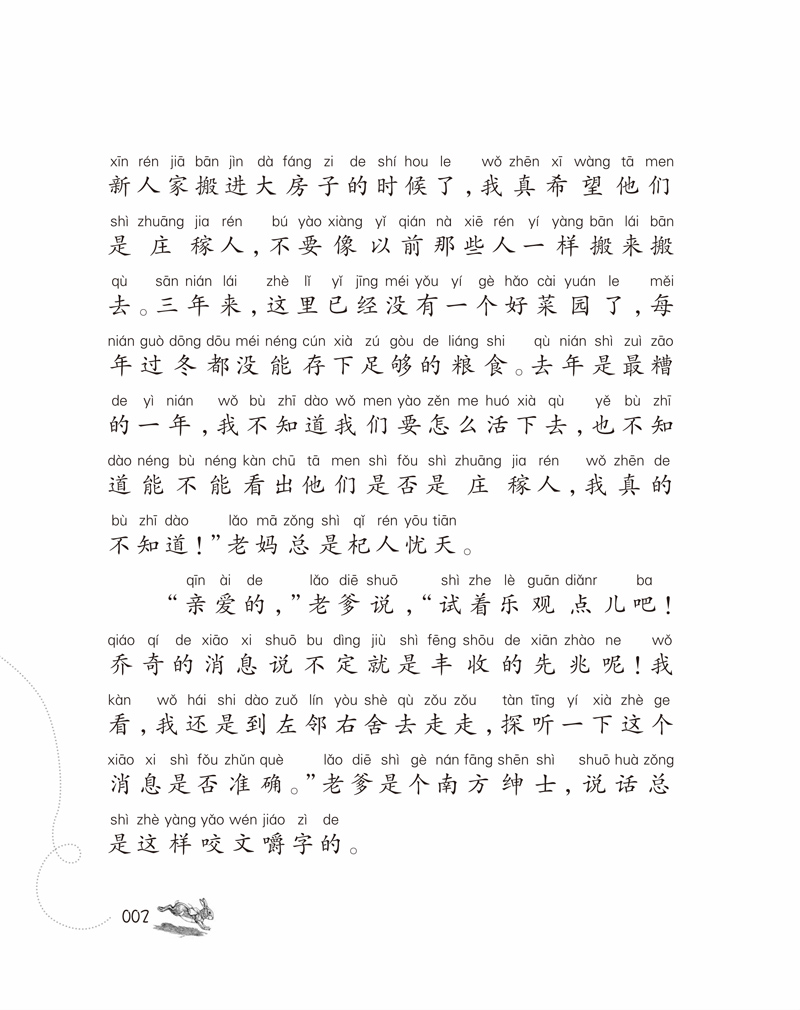 xīn rén jiā bān jìn dà fáng zi de shí hou le wǒ zhēn xī wàng tā men
新人家搬进大房子的时候了，我真希望他们
shì zhuāng jia rén bú yào xiàng yǐ qián nà xiē rén yí yàng bān lái bān
是庄稼人，不要像以前那些人一样搬来搬
qù sān nián lái zhè lǐ yǐ jīng méi yǒu yí gè hǎo cài yuán le měi
去。三年来，这里已经没有一个好菜园了，每
nián guò dōng dōu méi néng cún xià zú gòu de liáng shi qù nián shì zuì zāo
年过冬都没能存下足够的粮食。去年是最糟
de yì nián wǒ bù zhī dào wǒ men yào zěn me huó xià qù yě bù zhī
的一年，我不知道我们要怎么活下去，也不知
dào néng bù néng kàn chū tā men shì fǒu shì zhuāng jia rén wǒ zhēn de
道能不能看出他们是否是庄稼人，我真的
bù zhī dào lǎo mā zǒng shì qǐ rén yōu tiān
不知道！”老妈总是杞人忧天。
qīn ài de lǎo diē shuō shì zhe lè guān diǎnr ba
“亲爱的，”老爹说，“试着乐观点儿吧！
qiáo qí de xiāo xi shuō bu dìng jiù shì fēng shōu de xiān zhào ne wǒ
乔奇的消息说不定就是丰收的先兆呢！我
kàn wǒ hái shi dào zuǒ lín yòu shè qù zǒu zǒu tàn tīng yí xià zhè ge
看，我还是到左邻右舍去走走，探听一下这个
xiāo xi shì fǒu zhǔn què lǎo diē shì gè nán fāng shēn shì shuō huà zǒng
消息是否准确。”老爹是个南方绅士，说话总
shì zhè yàng yǎo wén jiáo zì de
是这样咬文嚼字的。
002